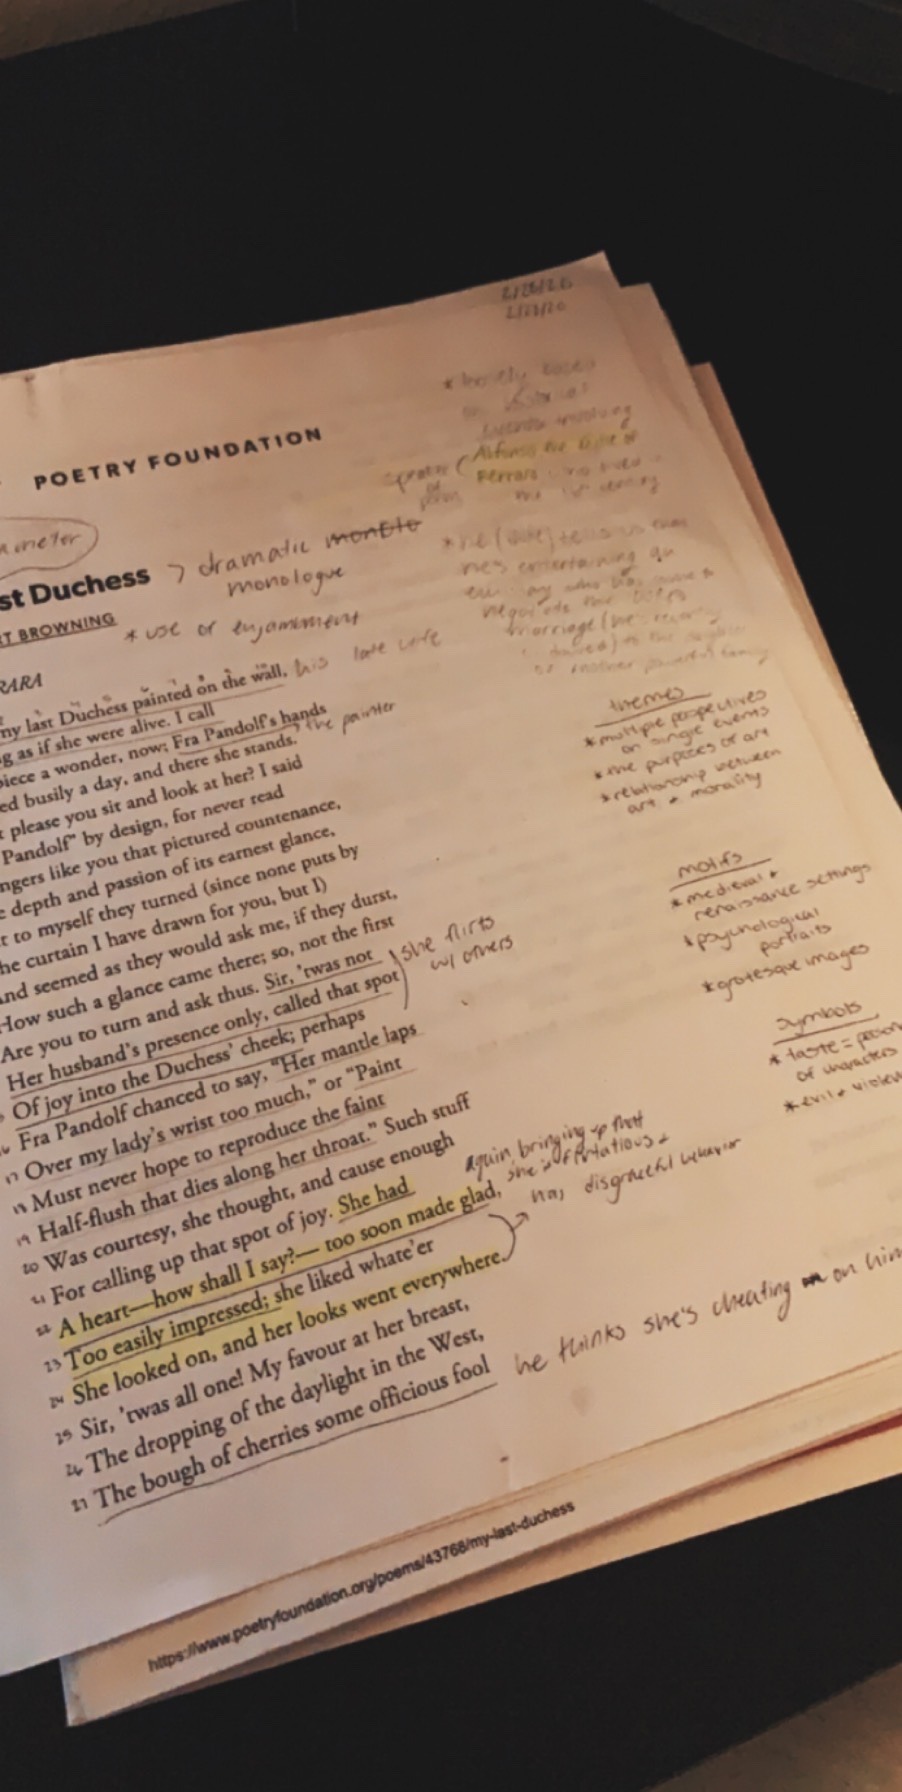 2/13/20
* loosely based
POETRY FOUNDATION
involving
Alfonso the Duke of
Ferrara
speaker
of
poem
meter
st Duchess > dramatic
monologue
RT BROWNING
* use of enjambment
* he (duke) tells us that
he's entertaining an
negotiate
marriage
another powerful family
RARA
ny last Duchess painted on the wall, his late wife
g as if she were alive. I call
piece a wonder, now; Fra Pandolf's hands the painter
ed busily a day, and there she stands.
t please you sit and look at her? I said
Pandolf" by design, for never read
ngers like you that pictured countenance,
e depth and passion of its earnest glance,
t to myself they turned (since none puts by
he curtain I have drawn for you, but I)
And seemed as they would ask me, if they durst,
How such a glance came there; so, not the first
Are you to turn and ask thus. Sir, 'twas not
Her husband's presence only, called that spot
Of joy into the Duchess' cheek; perhaps
16 Fra Pandolf chanced to say, "Her mantle laps
17 Over my lady's wrist too much," or "Paint
18 Must never hope to reproduce the faint
19 Half-flush that dies along her throat." Such stuff
20 Was courtesy, she thought, and cause enough
21 For calling up that spot of joy. She had
22 A heart—how shall I say?— too soon made glad,
23 Too easily impressed; she liked whate'er
24 She looked on, and her looks went everywhere.
25 Sir, 'twas all one! My favour at her breast,
26 The dropping of the daylight in the West,
27 The bough of cherries some officious fool
she flirts
w/ others
again, bringing up that
she's flirtatious +
has disgraceful behavior
he thinks she's cheating on him
themes
* multiple perspectives
on single events
* the purposes of art
* relationship between
art + morality
motifs
* medieval +
renaissance settings
* psychological
portraits
* grotesque images
symbols
* taste =
of characters
* evil +
https://www.poetryfoundation.org/poems/43768/my-last-duchess